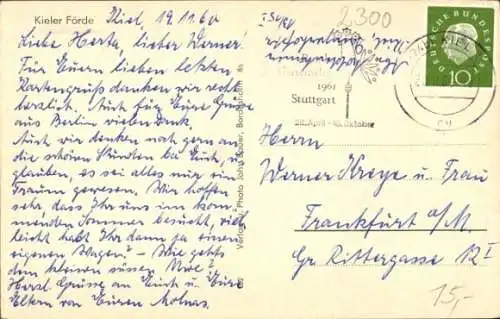 Kieler Förde
Kiel, 19.11.60
Liebe Herta, lieber Werner!
Für Euren lieben letzten
Kartengruß danken wir recht
herzlich. Auch für Eure Grüße
aus Berlin vielen Dank.
Auch wir denken noch gern an
die schönen Stunden bei Euch, u.
glauben, es sei alles nur ein
Traum gewesen. Wir hoffen
sehr, dass Ihr uns im kom-
menden Sommer besucht, viel-
leicht habt Ihr dann ja einen
eigenen Wagen? - Wie geht's
dem kleinen süssen Uwe?
Herzl. Grüsse an Euch u. Eure
Eltern von Euren
Verlag
Photo
2300
1961
Stuttgart
28. April - Oktober
DEUTSCHE BUNDESPOST
10
Herrn
Werner Kreye u. Frau
Frankfurt a/M.
Gr. Rittergasse
15,-